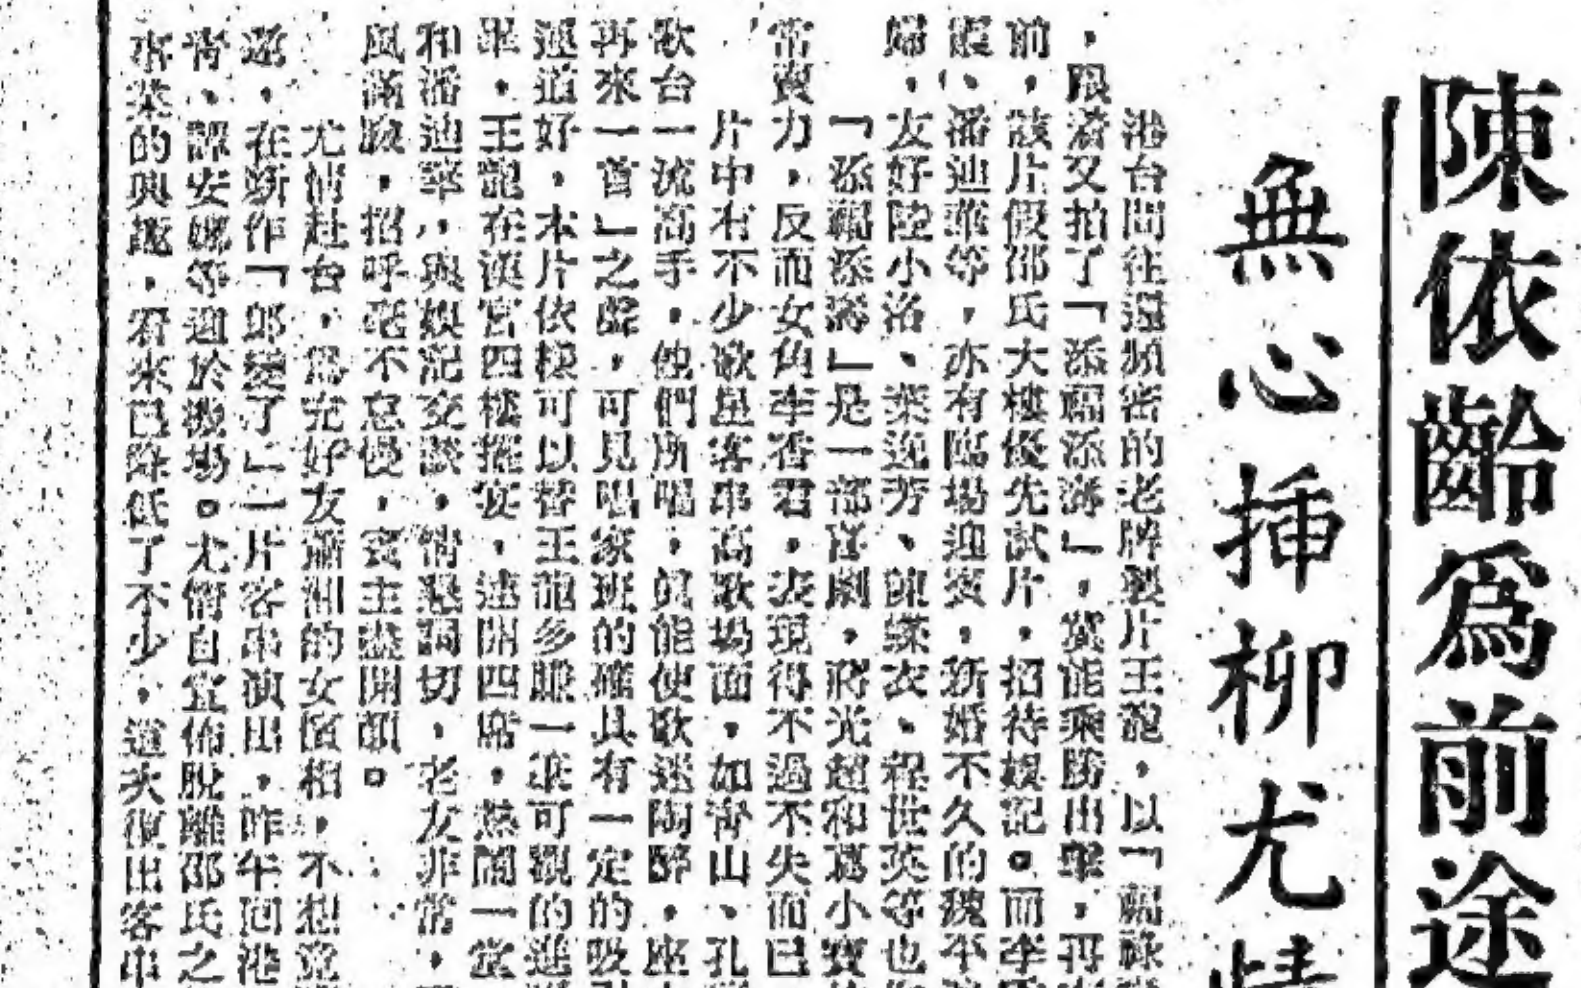 陳依齡爲前途
無心揷柳尤情
港台間往還頻密的老牌製片王龍，以「福祿
，跟着又拍了「添福添壽」，冀能乘勝出擊，再
前，該片假邵氏大樓優先試片，招待娛記。而李
霞、潘迪華等，亦有臨場迎賓，新婚不久的魏平
婦，友好陸小洛、葉逸芳、陳蝶衣、程世英等也
「添福添壽」是一部喜劇，蔣光超和葛小寶
常賣力，反而女角李香君，表現得不過不失而已
片中有不少歌星客串高歌場面，如青山、孔
歌台一流高手，他們所唱，眞能使歌迷陶醉，座
再來一首」之聲，可見唱家班的確具有一定的吸
運道好，本片依樣可以替王龍多賺一筆可觀的進
畢，王龍在漢宮四樓擺宴，連開四席，熱鬧一堂
和潘迪華，與娛記交談，情懇詞切，老友非常，
風滿臉，招呼毫不怠慢，賓主盡開顔。
尤情赴台，爲充好友蕭洲的女儐相，不想竟
遜，在新作「郎變了」一片客串演出，昨午回港
青、譚安娜等迎於機場。尤情自宣佈脫離邵氏之
事業的興趣，看來已降低了不少，這次復出客串